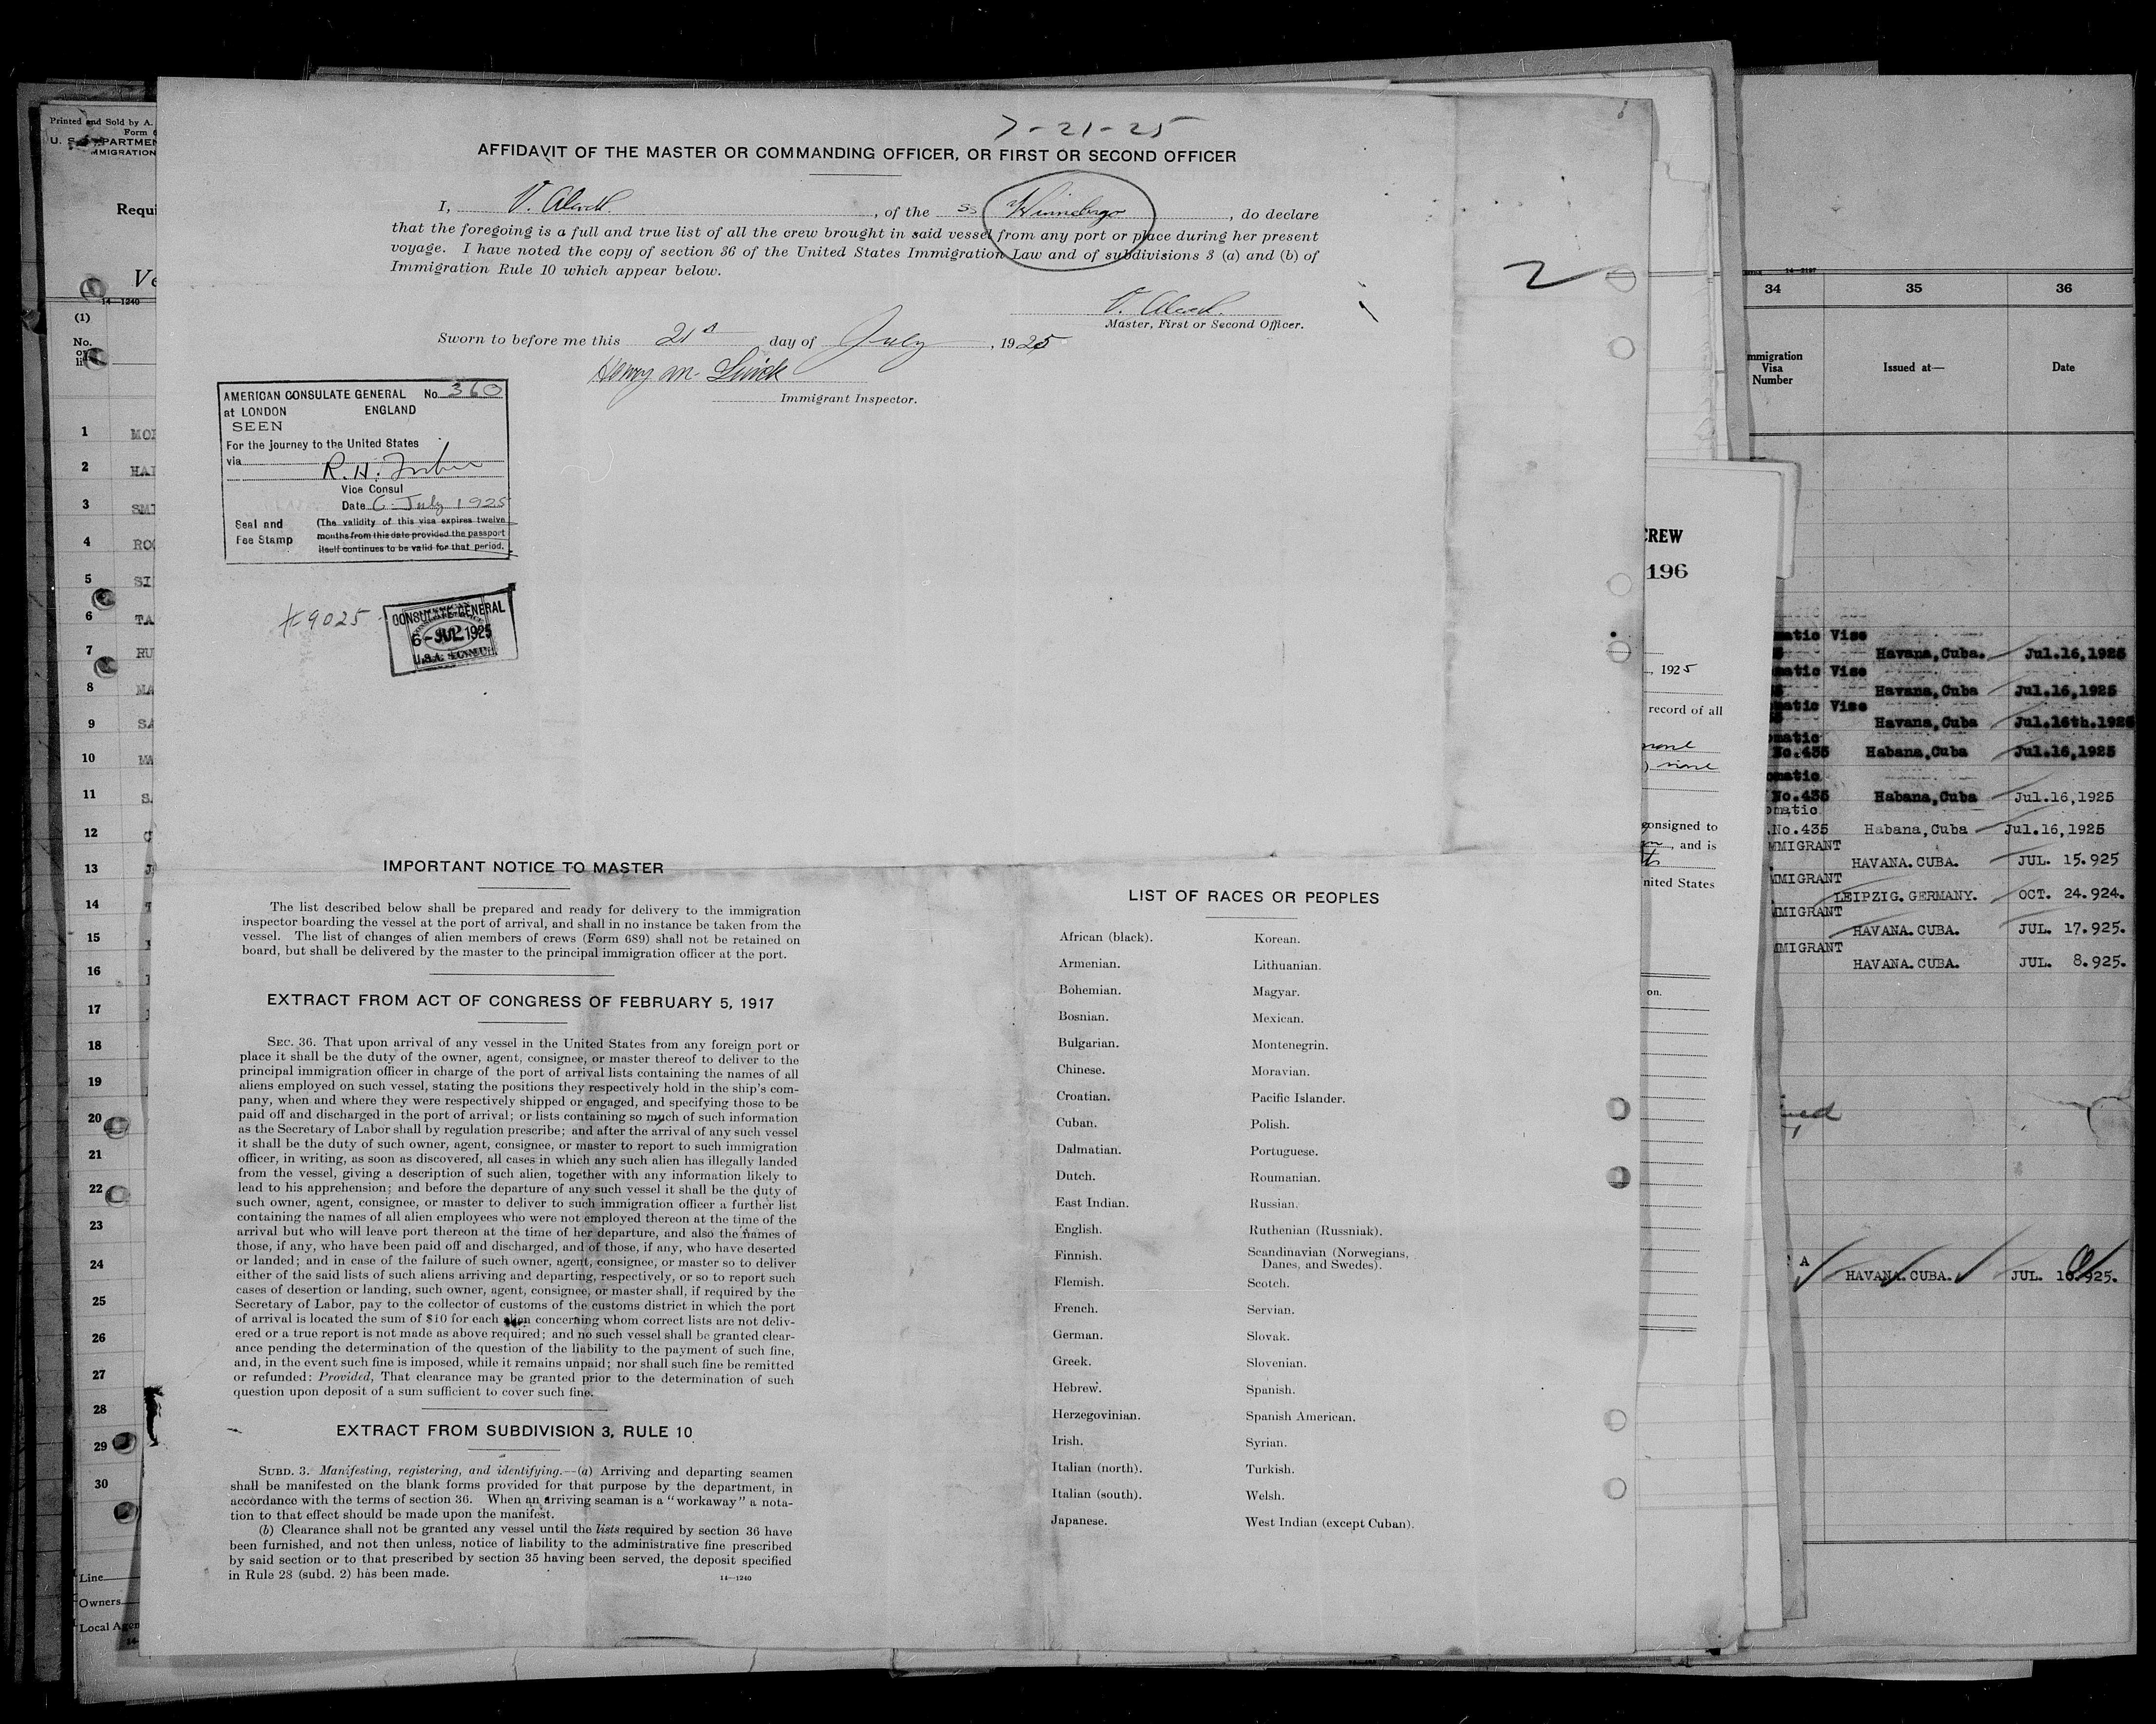 7-21-25
AFFIDAVIT OF THE MASTER OR COMMANDING OFFICER, OR FIRST OR SECOND OFFICER
I, V. , of the SS Winnebago , do declare
that the foregoing is a full and true list of all the crew brought in said vessel from any port or place during her present
voyage. I have noted the copy of section 36 of the United States Immigration Law and of subdivisions 3 (a) and (b) of
Immigration Rule 10 which appear below.
2
V.
Master, First or Second Officer.
Sworn to before me this 21st day of July , 1925
Henry M.
Immigrant Inspector.
AMERICAN CONSULATE GENERAL No. 360
at LONDON ENGLAND
SEEN
For the journey to the United States
via
R. H.
Vice Consul
Date 6 July 1925
Seal and Fee Stamp
(The validity of this visa expires twelve
months from this date provided the passport
itself continues to be valid for that period.
#9025
CONSULATE-GENERAL
6-JUL 1925
IMPORTANT NOTICE TO MASTER
The list described below shall be prepared and ready for delivery to the immigration
inspector boarding the vessel at the port of arrival, and shall in no instance be taken from the
vessel. The list of changes of alien members of crews (Form 689) shall not be retained on
board, but shall be delivered by the master to the principal immigration officer at the port.
EXTRACT FROM ACT OF CONGRESS OF FEBRUARY 5, 1917
SEC. 36. That upon arrival of any vessel in the United States from any foreign port or
place it shall be the duty of the owner, agent, consignee, or master thereof to deliver to the
principal immigration officer in charge of the port of arrival lists containing the names of all
aliens employed on such vessel, stating the positions they respectively hold in the ship's com-
pany, when and where they were respectively shipped or engaged, and specifying those to be
paid off and discharged in the port of arrival; or lists containing so much of such information
as the Secretary of Labor shall by regulation prescribe; and after the arrival of any such vessel
it shall be the duty of such owner, agent, consignee, or master to report to such immigration
officer, in writing, as soon as discovered, all cases in which any such alien has illegally landed
from the vessel, giving a description of such alien, together with any information likely to
lead to his apprehension; and before the departure of any such vessel it shall be the duty of
such owner, agent, consignee, or master to deliver to such immigration officer a further list
containing the names of all alien employees who were not employed thereon at the time of the
arrival but who will leave port thereon at the time of her departure, and also the names of
those, if any, who have been paid off and discharged, and of those, if any, who have deserted
or landed; and in case of the failure of such owner, agent, consignee, or master so to deliver
either of the said lists of such aliens arriving and departing, respectively, or so to report such
cases of desertion or landing, such owner, agent, consignee, or master shall, if required by the
Secretary of Labor, pay to the collector of customs of the customs district in which the port
of arrival is located the sum of $10 for each alien concerning whom correct lists are not deliv-
ered or a true report is not made as above required; and no such vessel shall be granted clear-
ance pending the determination of the question of the liability to the payment of such fine,
and, in the event such fine is imposed, while it remains unpaid; nor shall such fine be remitted
or refunded: Provided, That clearance may be granted prior to the determination of such
question upon deposit of a sum sufficient to cover such fine.
EXTRACT FROM SUBDIVISION 3, RULE 10
SUBD. 3. Manifesting, registering, and identifying.—(a) Arriving and departing seamen
shall be manifested on the blank forms provided for that purpose by the department, in
accordance with the terms of section 36. When an arriving seaman is a "workaway" a nota-
tion to that effect should be made upon the manifest.
(b) Clearance shall not be granted any vessel until the lists required by section 36 have
been furnished, and not then unless, notice of liability to the administrative fine prescribed
by said section or to that prescribed by section 35 having been served, the deposit specified
in Rule 28 (subd. 2) has been made.
14—1240
LIST OF RACES OR PEOPLES
African (black). Korean.
Armenian. Lithuanian.
Bohemian. Magyar.
Bosnian. Mexican.
Bulgarian. Montenegrin.
Chinese. Moravian.
Croatian. Pacific Islander.
Cuban. Polish.
Dalmatian. Portuguese.
Dutch. Roumanian.
East Indian. Russian.
English. Ruthenian (Russniak).
Finnish. Scandinavian (Norwegians,
Danes, and Swedes).
Flemish. Scotch.
French. Servian.
German. Slovak.
Greek. Slovenian.
Hebrew. Spanish.
Herzegovinian. Spanish American.
Irish. Syrian.
Italian (north). Turkish.
Italian (south). Welsh.
Japanese. West Indian (except Cuban).
Printed and Sold by A.
Form
U. S. DEPARTMEN
IMMIGRATION
Requi
Ve
14—1240
(1)
No.
on
list
1 MO
2 HA
3 SMI
4 RO
5 SI
6 TA
7 RU
8 MA
9 SA
10 MA
11 S
12
13 J
14
15
16
17
18
19
20
21
22
23
24
25
26
27
28
29
30
Line
Owners
Local Agen
CREW
196
, 1925
record of all
none
none
consigned to
, and is
nited States
on.
14—2197
34 35 36
mmigration
Visa
Number
Issued at—
Date
matic Vise
Havana, Cuba. Jul.16,1925
matic Vise
Havana, Cuba Jul.16,1925
matic Vise
Havana, Cuba Jul.16th.1925
omatic
No.435 Habana, Cuba Jul.16,1925
omatic
No.435 Habana, Cuba Jul.16,1925
omatic
.No.435 Habana, Cuba Jul.16,1925
MMIGRANT
HAVANA. CUBA. JUL. 15.925
MMIGRANT
LEIPZIG. GERMANY. OCT. 24.924.
MMIGRANT
HAVANA. CUBA. JUL. 17.925.
MMIGRANT
HAVANA. CUBA. JUL. 8.925.
A
HAVANA. CUBA. JUL. 10.925.